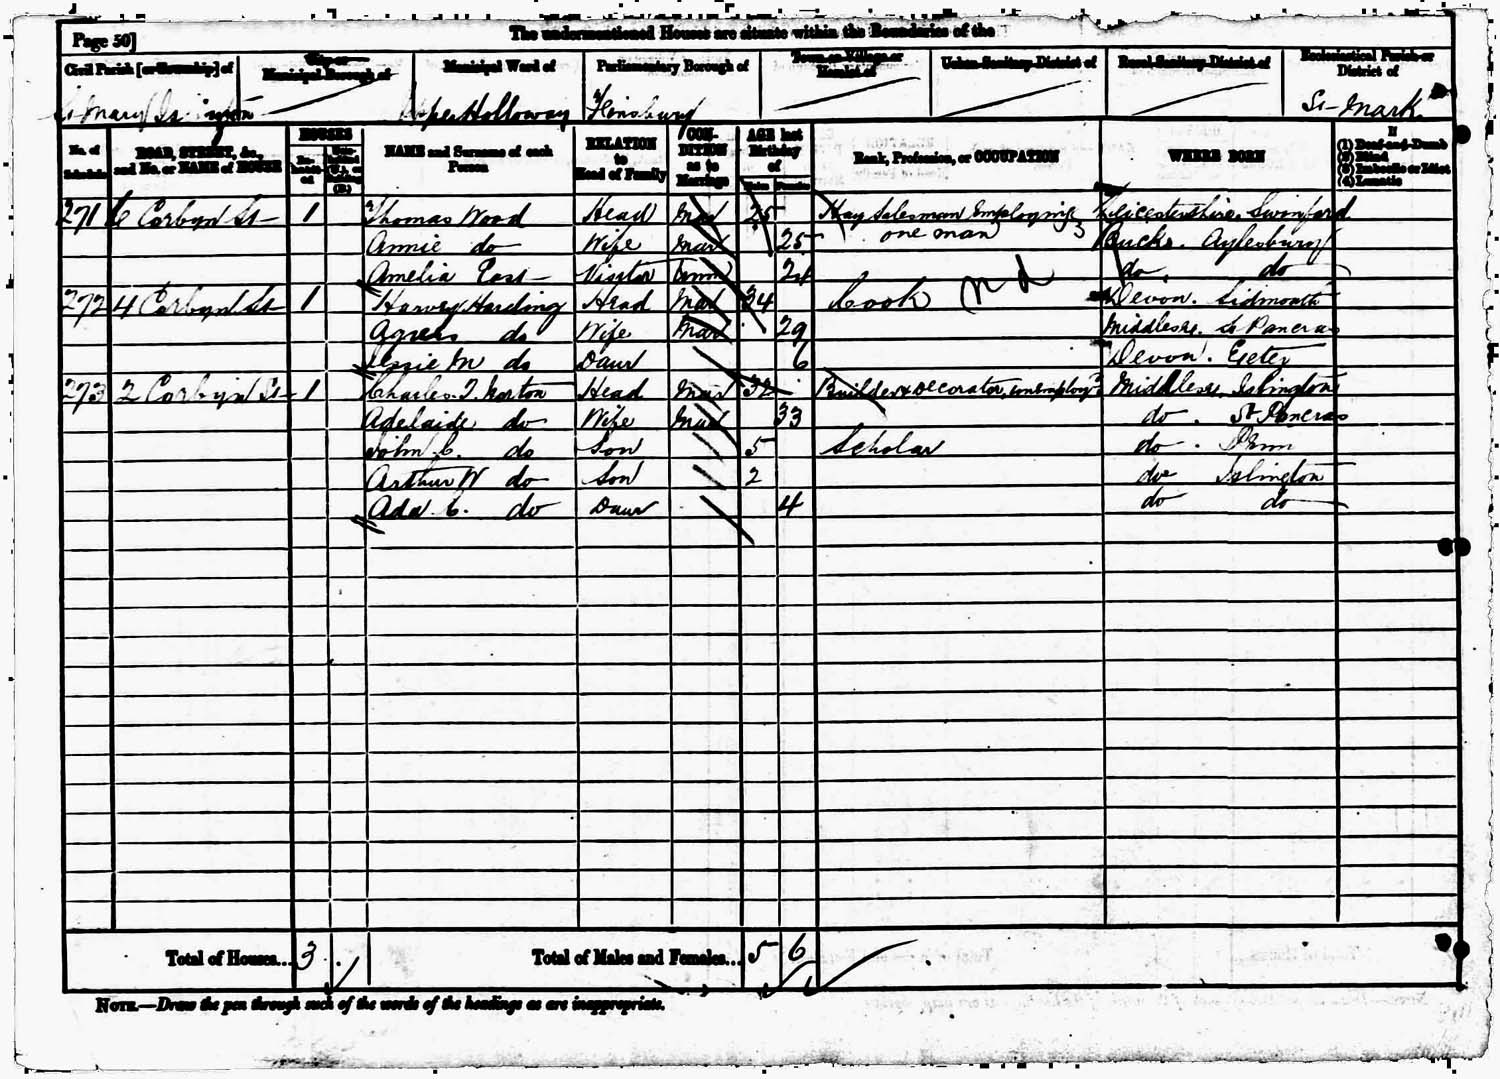 Page 50]
The undermentioned Houses are situate within the Boundaries of the
Civil Parish [or Township] of
City or Municipal Borough of
Municipal Ward of
Parliamentary Borough of
Town or Village or Hamlet of
Urban Sanitary District of
Rural Sanitary District of
Ecclesiastical Parish or District of
St Mary Islington Upper Holloway Finsbury St Mark
No. of Schedule
ROAD, STREET, &c., and No. or NAME of HOUSE
HOUSES
Inhabited
Uninhabited (U.), or Building (B.)
NAME and Surname of each Person
RELATION to Head of Family
CONDITION as to Marriage
AGE last Birthday of
Males Females
Rank, Profession, or OCCUPATION
WHERE BORN
If
(1) Deaf-and-Dumb
(2) Blind
(3) Imbecile or Idiot
(4) Lunatic
271 6 Corbyn St 1 Thomas Wood Head Mar 25 Hay Salesman Employing Leicestershire. Swinford
Annie do Wife Mar 25 one man 3 Bucks. Aylesbury
Amelia East Visitor Unm 24 do. do
272 4 Corbyn St 1 Harvey Harding Head Mar 34 Cook nd Devon. Sidmouth
Agnes do Wife Mar 29 Middlesex. St Pancras
Jessie M do Daur 6 Devon. Exeter
273 2 Corbyn St 1 Charles. T. Norton Head Mar 32 Builder & Decorator, unemploy'd Middlesex. Islington
Adelaide do Wife Mar 33 do. St Pancras
John C. do Son 5 Scholar do.
Arthur W do Son 2 do Islington
Ada C. do Daur 4 do do
Total of Houses... 3
Total of Males and Females... 5 6
NOTE.—Draw the pen through such of the words of the headings as are inappropriate.